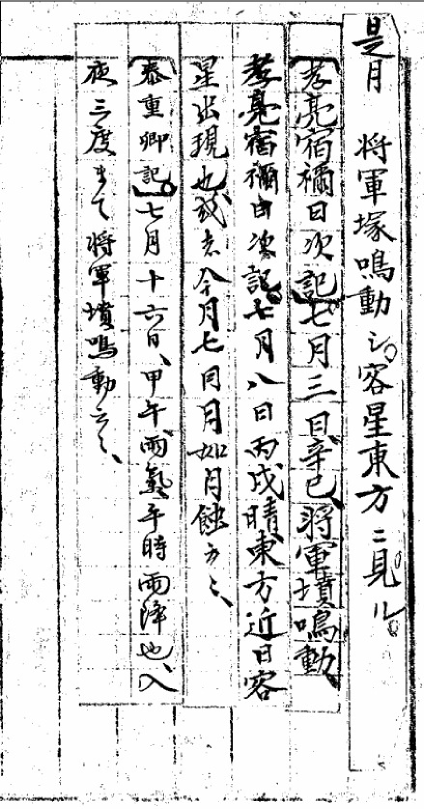 是月　将軍塚鳴動シ。客星東方ニ見ル。
〔孝亮宿禰日次記〕七月三日、辛巳、将軍墳鳴動、
孝亮宿禰日次記、七月八日丙戌、晴、東方近日客
星出現也、或云今月七日月如月蝕云々、
〔泰重卿記〕七月十六日、甲午、雨氣、午時雨降也、入
夜三度まて将軍墳鳴動云々、